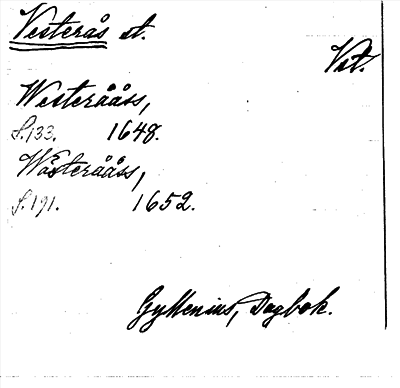 Vesterås st.
Vst.
Westerååss,
S. 133. 1648.
Wästerååss,
S. 191. 1652.
Gyllenius, Dagbok.